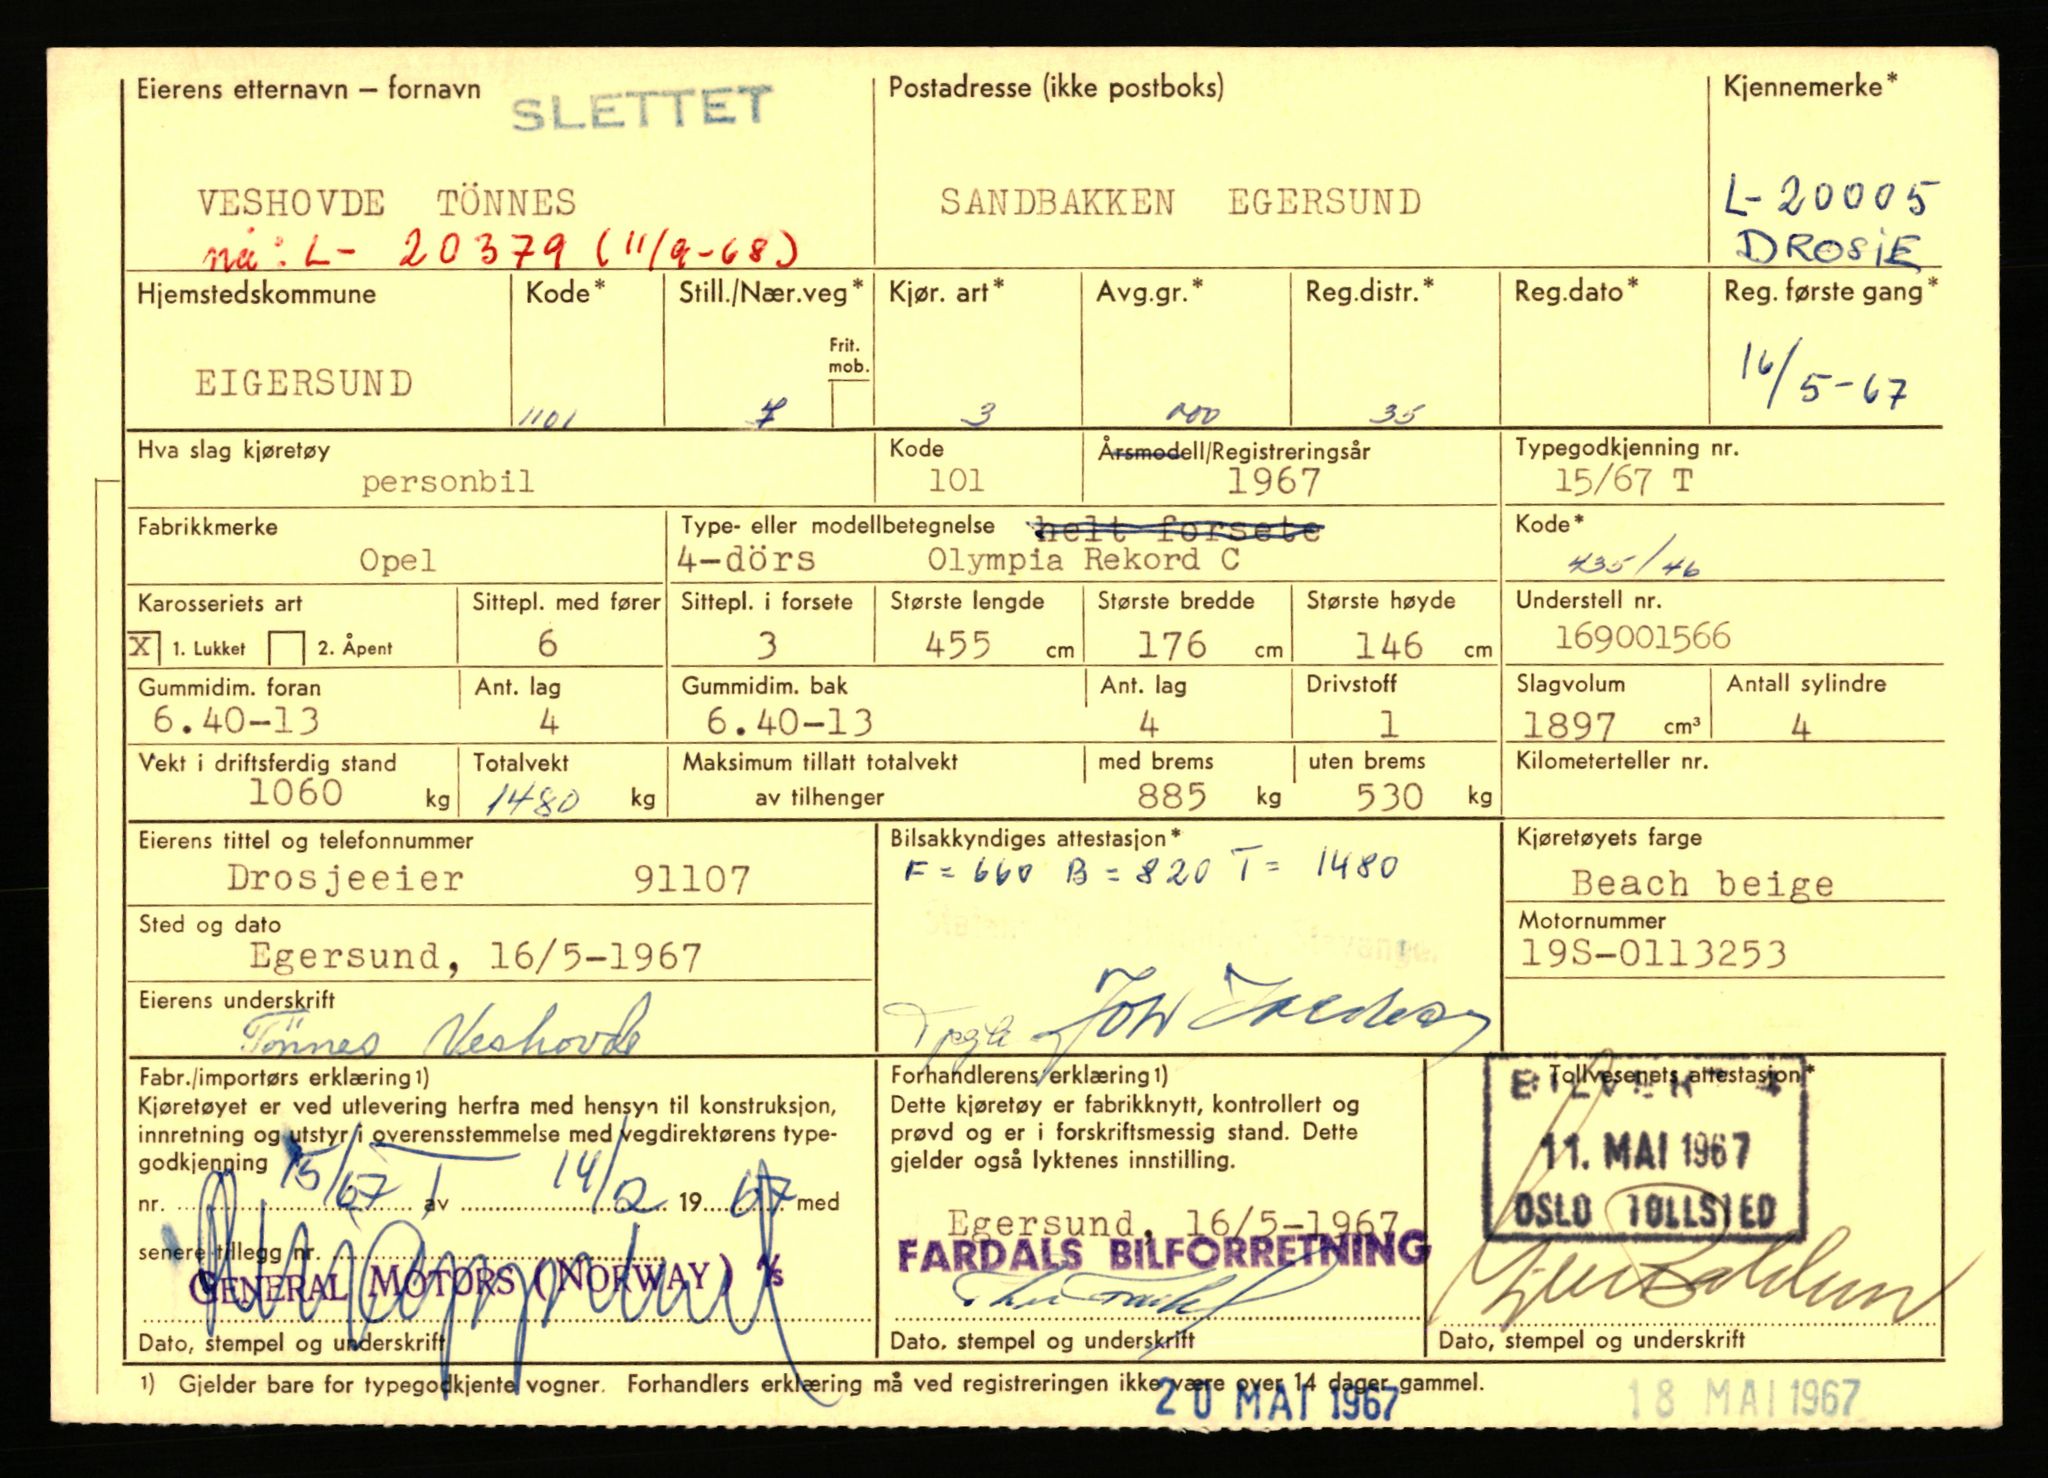 Eierens etternavn – fornavn
SLETTET
Postadresse (ikke postboks)
Kjennemerke*
VESHOVDE TÖNNES
SANDBAKKEN EGERSUND
L-20005
nå: L- 20379 (11/9-68)
DROSJE
Hjemstedskommune
Kode*
Still./Nær.veg*
Kjør. art*
Avg.gr.*
Reg.distr.*
Reg.dato*
Reg. første gang*
Frit.
mob.
EIGERSUND
1101
7
3
000
35
16/5-67
Hva slag kjøretøy
Kode
Årsmodell/Registreringsår
Typegodkjenning nr.
personbil
101
1967
15/67 T
Fabrikkmerke
Type- eller modellbetegnelse
helt forsete
Kode*
Opel
4-dörs Olympia Rekord C
435/46
Karosseriets art
Sittepl. med fører
Sittepl. i forsete
Største lengde
Største bredde
Største høyde
Understell nr.
X 1. Lukket 2. Åpent
6
3
455 cm
176 cm
146 cm
169001566
Gummidim. foran
Ant. lag
Gummidim. bak
Ant. lag
Drivstoff
Slagvolum
Antall sylindre
6.40-13
4
6.40-13
4
1
1897 cm³
4
Vekt i driftsferdig stand
Totalvekt
Maksimum tillatt totalvekt
med brems
uten brems
Kilometerteller nr.
1060 kg
1480 kg
av tilhenger
885 kg
530 kg
Eierens tittel og telefonnummer
Bilsakkyndiges attestasjon*
Kjøretøyets farge
Drosjeeier 91107
F = 660 B = 820 T = 1480
Beach beige
Sted og dato
Motornummer
Egersund, 16/5-1967
19S-0113253
Eierens underskrift
Tönnes Veshovde
Fabr./importørs erklæring1)
Kjøretøyet er ved utlevering herfra med hensyn til konstruksjon,
innretning og utstyr i overensstemmelse med vegdirektørens type-
godkjenning
nr. 15/67 T av 14/2 1967 med
senere tillegg nr.
GENERAL MOTORS (NORWAY) A/S
Dato, stempel og underskrift
Forhandlerens erklæring1)
Dette kjøretøy er fabrikknytt, kontrollert og
prøvd og er i forskriftsmessig stand. Dette
gjelder også lyktenes innstilling.
Egersund, 16/5-1967
FARDALS BILFORRETNING
Dato, stempel og underskrift
Tollvesenets attestasjon*
11. MAI 1967
OSLO TOLLSTED
Dato, stempel og underskrift
1) Gjelder bare for typegodkjente vogner. Forhandlers erklæring må ved registreringen ikke være over 14 dager gammel.
20 MAI 1967
18 MAI 1967